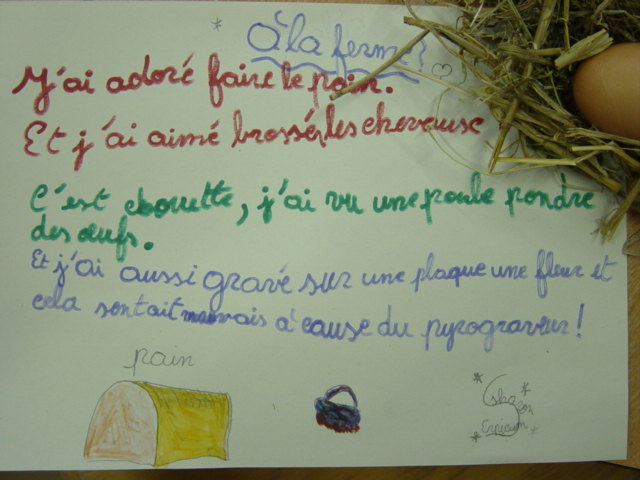 À la ferme
J'ai adoré faire le pain.
Et j'ai aimé brossér les cheveuse
C'est chouette, j'ai vu une poule pondre
des œufs.
Et j'ai aussi gravé sur une plaque une fleur et
cela sentait mauvais a cause du pyrograveur !
pain